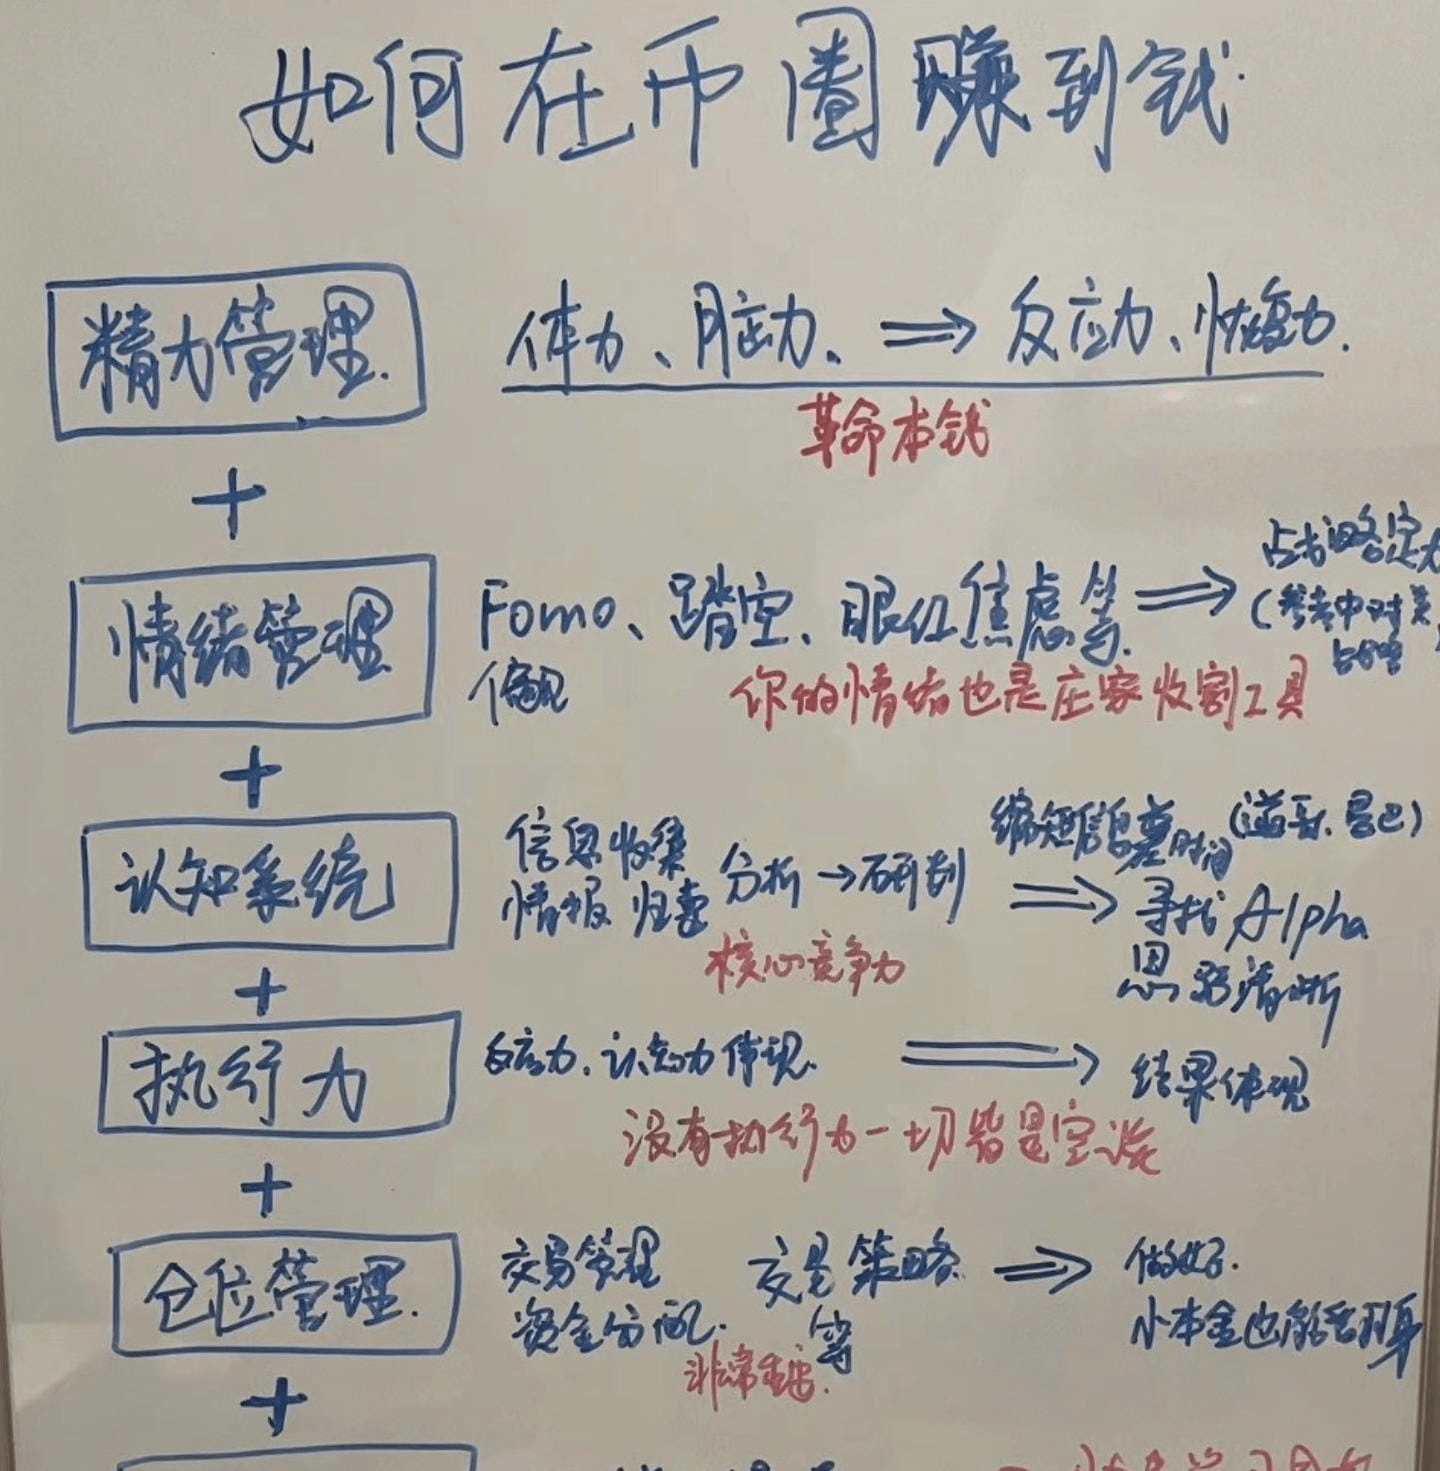 如何在币圈赚到钱
精力管理 体力、脑力、⇒ 反应力、恢复力.
革命本钱
+
情绪管理 Fomo、踏空、眼红焦虑等. ⇒ 战略定力
偏见 (参考中对美战略)
你的情绪也是庄家收割工具
+
认知系统 信息收集 分析→研判 ⇒ 缩短信息差时间
情报归类 寻找Alpha
核心竞争力 思路清晰
+
执行力 反应力、认知力体现. ⇒ 结果体现
没有执行力一切皆是空谈
+
仓位管理. 交易管理 交易策略 ⇒ 做好.
资金分配. 等 小本金也能活翻身
非常重要.
+